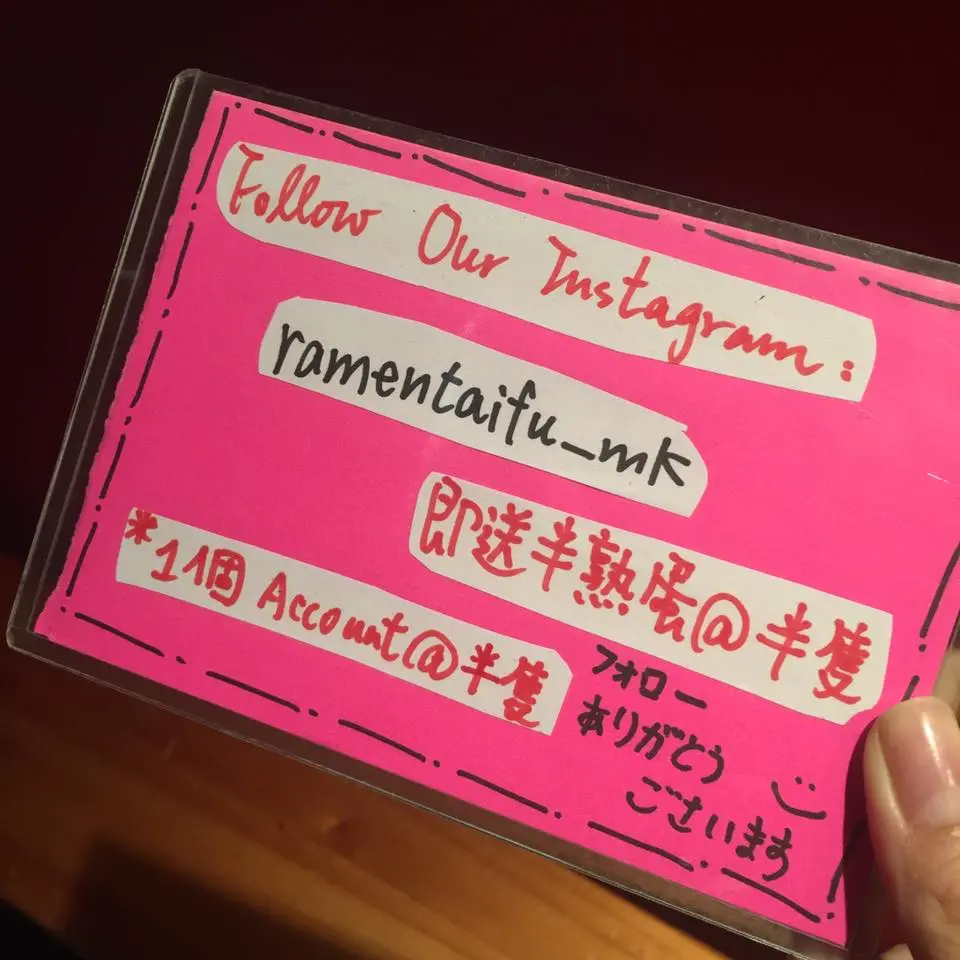 Follow Our Instagram:
ramentaifu_mk
即送半熟蛋@半隻
*1個 Account@半隻
フォロー
ありがとう
ございます